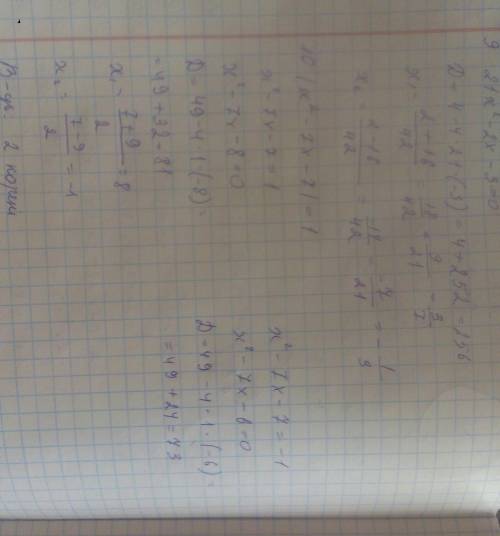 9 21x² - 2x - 3 = 0
D = 4 - 4·21·(-3) = 4 + 252 = 256
x₁ = (2+16)/42 = 18/42 = 9/21 = 3/7
x₂ = (2-16)/42 = -14/42 = -7/21 = -1/3
10. |x² - 7x - 7| = 1
x² - 7x - 7 = 1
x² - 7x - 8 = 0
D = 49 - 4·1·(-8) =
= 49 + 32 = 81
x₁ = (7+9)/2 = 8
x₂ = (7-9)/2 = -1
x² - 7x - 7 = -1
x² - 7x - 6 = 0
D = 49 - 4·1·(-6) =
= 49 + 24 = 73
В-дь. 2 корені